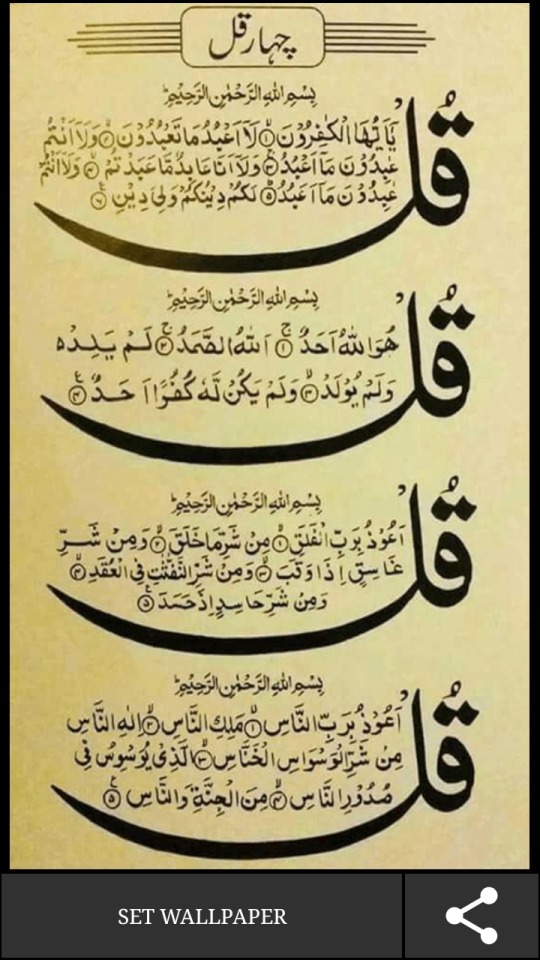 چہار قل
بِسْمِ اللهِ الرَّحْمٰنِ الرَّحِيْمِ
قُلْ يٰٓاَيُّهَا الْكٰفِرُوْنَ ۱ لَآ اَعْبُدُ مَا تَعْبُدُوْنَ ۲ وَلَآ اَنْتُمْ
عٰبِدُوْنَ مَآ اَعْبُدُ ۳ وَلَآ اَنَا عَابِدٌ مَّا عَبَدْتُّمْ ۴ وَلَآ اَنْتُمْ
عٰبِدُوْنَ مَآ اَعْبُدُ ۵ لَكُمْ دِيْنُكُمْ وَلِيَ دِيْنِ ۶
بِسْمِ اللهِ الرَّحْمٰنِ الرَّحِيْمِ
قُلْ هُوَ اللهُ اَحَدٌ ۱ اَللهُ الصَّمَدُ ۲ لَمْ يَلِدْ ە
وَلَمْ يُوْلَدْ ۳ وَلَمْ يَكُنْ لَّهٗ كُفُوًا اَحَدٌ ۴
بِسْمِ اللهِ الرَّحْمٰنِ الرَّحِيْمِ
قُلْ اَعُوْذُ بِرَبِّ الْفَلَقِ ۱ مِنْ شَرِّ مَا خَلَقَ ۲ وَمِنْ شَرِّ
غَاسِقٍ اِذَا وَقَبَ ۳ وَمِنْ شَرِّ النَّفّٰثٰتِ فِي الْعُقَدِ ۴
وَمِنْ شَرِّ حَاسِدٍ اِذَا حَسَدَ ۵
بِسْمِ اللهِ الرَّحْمٰنِ الرَّحِيْمِ
قُلْ اَعُوْذُ بِرَبِّ النَّاسِ ۱ مَلِكِ النَّاسِ ۲ اِلٰهِ النَّاسِ
مِنْ شَرِّ الْوَسْوَاسِ الْخَنَّاسِ ۳ الَّذِيْ يُوَسْوِسُ فِيْ
صُدُوْرِ النَّاسِ ۴ مِنَ الْجِنَّةِ وَالنَّاسِ ۵
SET WALLPAPER